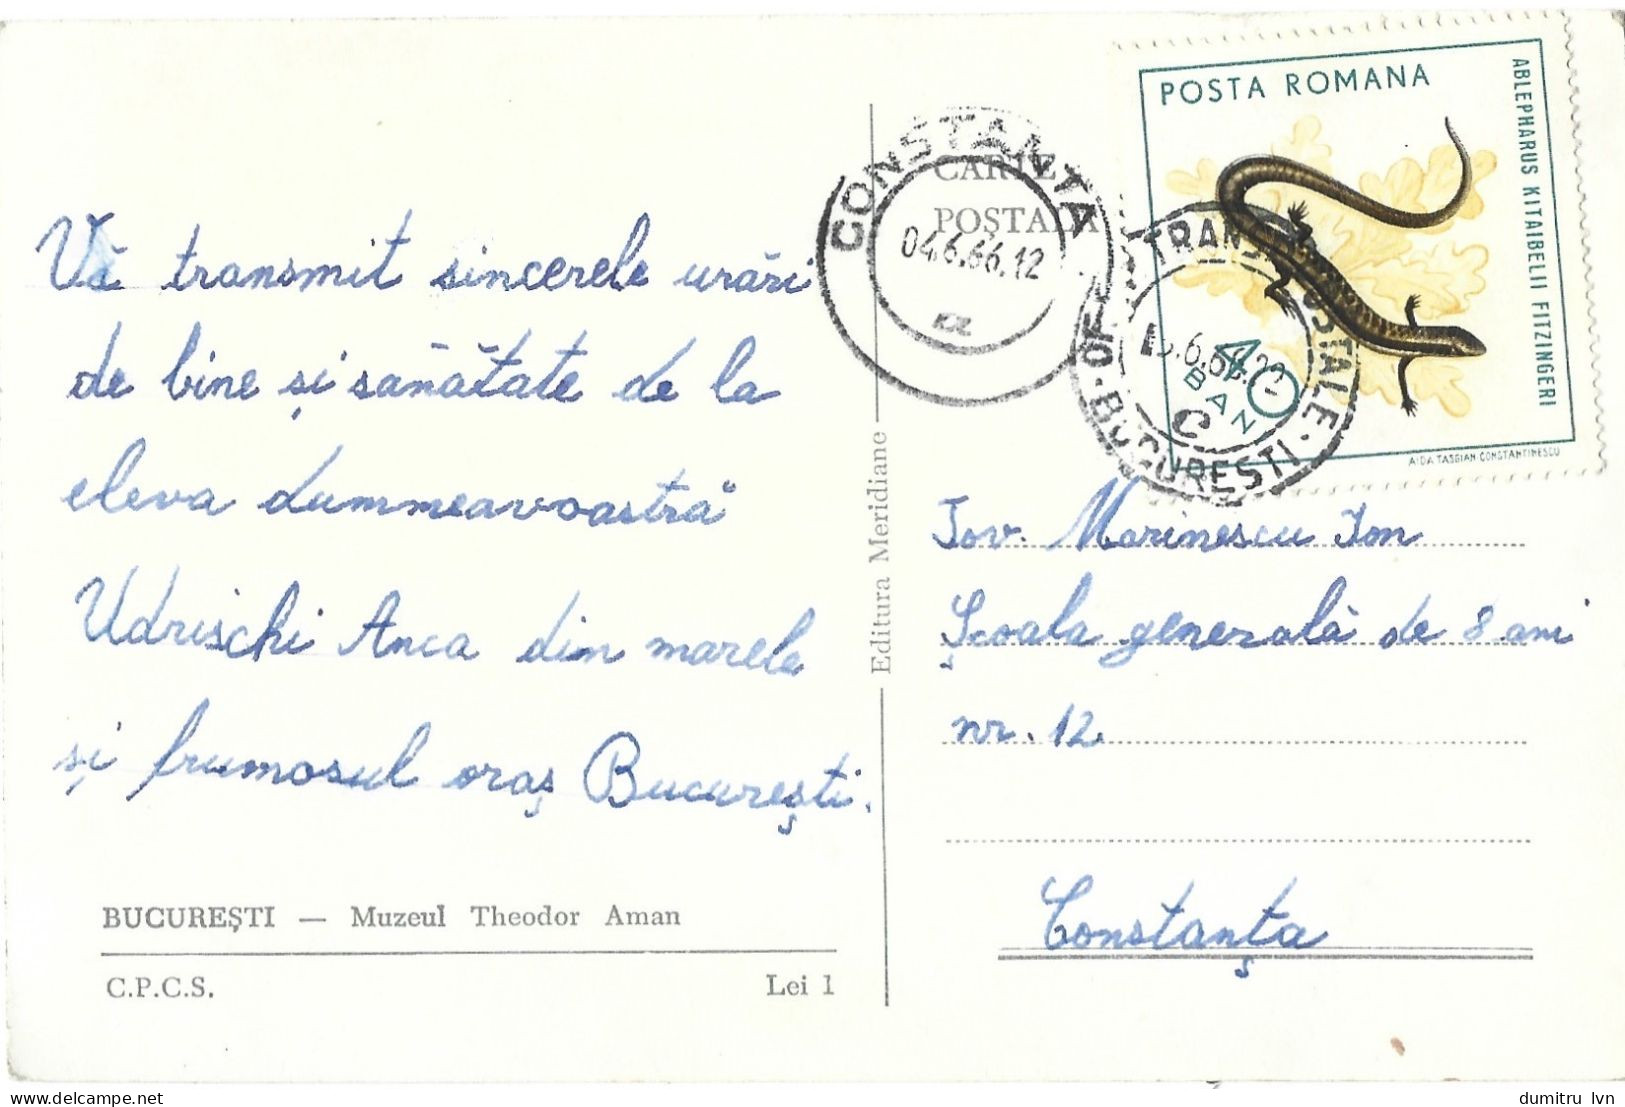 Vă transmit sincerele urări
de bine și sănătate de la
eleva dummeavoastră
Udrischi Anca din marele
și frumosul oraș București.
BUCUREȘTI — Muzeul Theodor Aman
C.P.C.S. Lei 1
Editura Meridiane
CARTE
POȘTALĂ
CONSTANTA
04.6.66.12
POSTA ROMANA
ABLEPHARUS KITAIBELII FITZINGERI
40
BAN
AIDA TASGIAN CONSTANTINESCU
OF. TRANS. POSTALE.
BUCUREȘTI
Tov. Marinescu Ion
Școala generală de 8 ani
nr. 12
Constanța
dumitru lvn